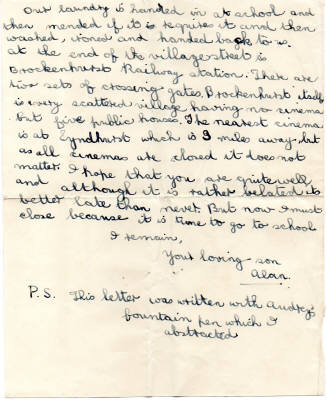 Our laundry is handed in at school and
then mended if it is require it and then
washed, ironed and handed back to us.
at the end of the village street is
Brockenhurst Railway station. There are
two sets of crossing gates. Brockenhurst itself
is every scattered village, having no cinema
but five public houses. The nearest cinema
is at Lyndhurst which is 3 miles away, but
as all cinemas are closed it does not
matter. I hope that you are quite well
and although it is rather belated its
better late than never. But now I must
close because it is time to go to school
I remain,
Your loving son
Alan.
P.S. This letter was written with Audrey's
fountain pen which I
abstracted